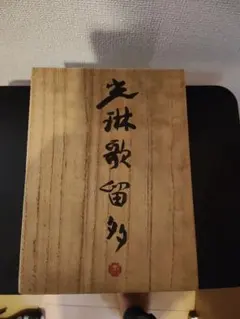 光琳歌留多